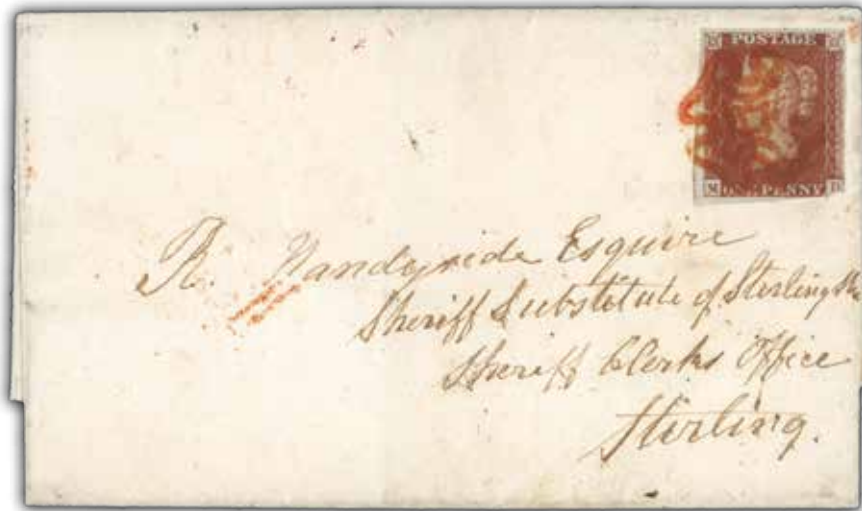 POSTAGE
ONE PENNY
R. Handyside Esquire
Sheriff Substitute of Stirling
Sheriff Clerks Office
Stirling.